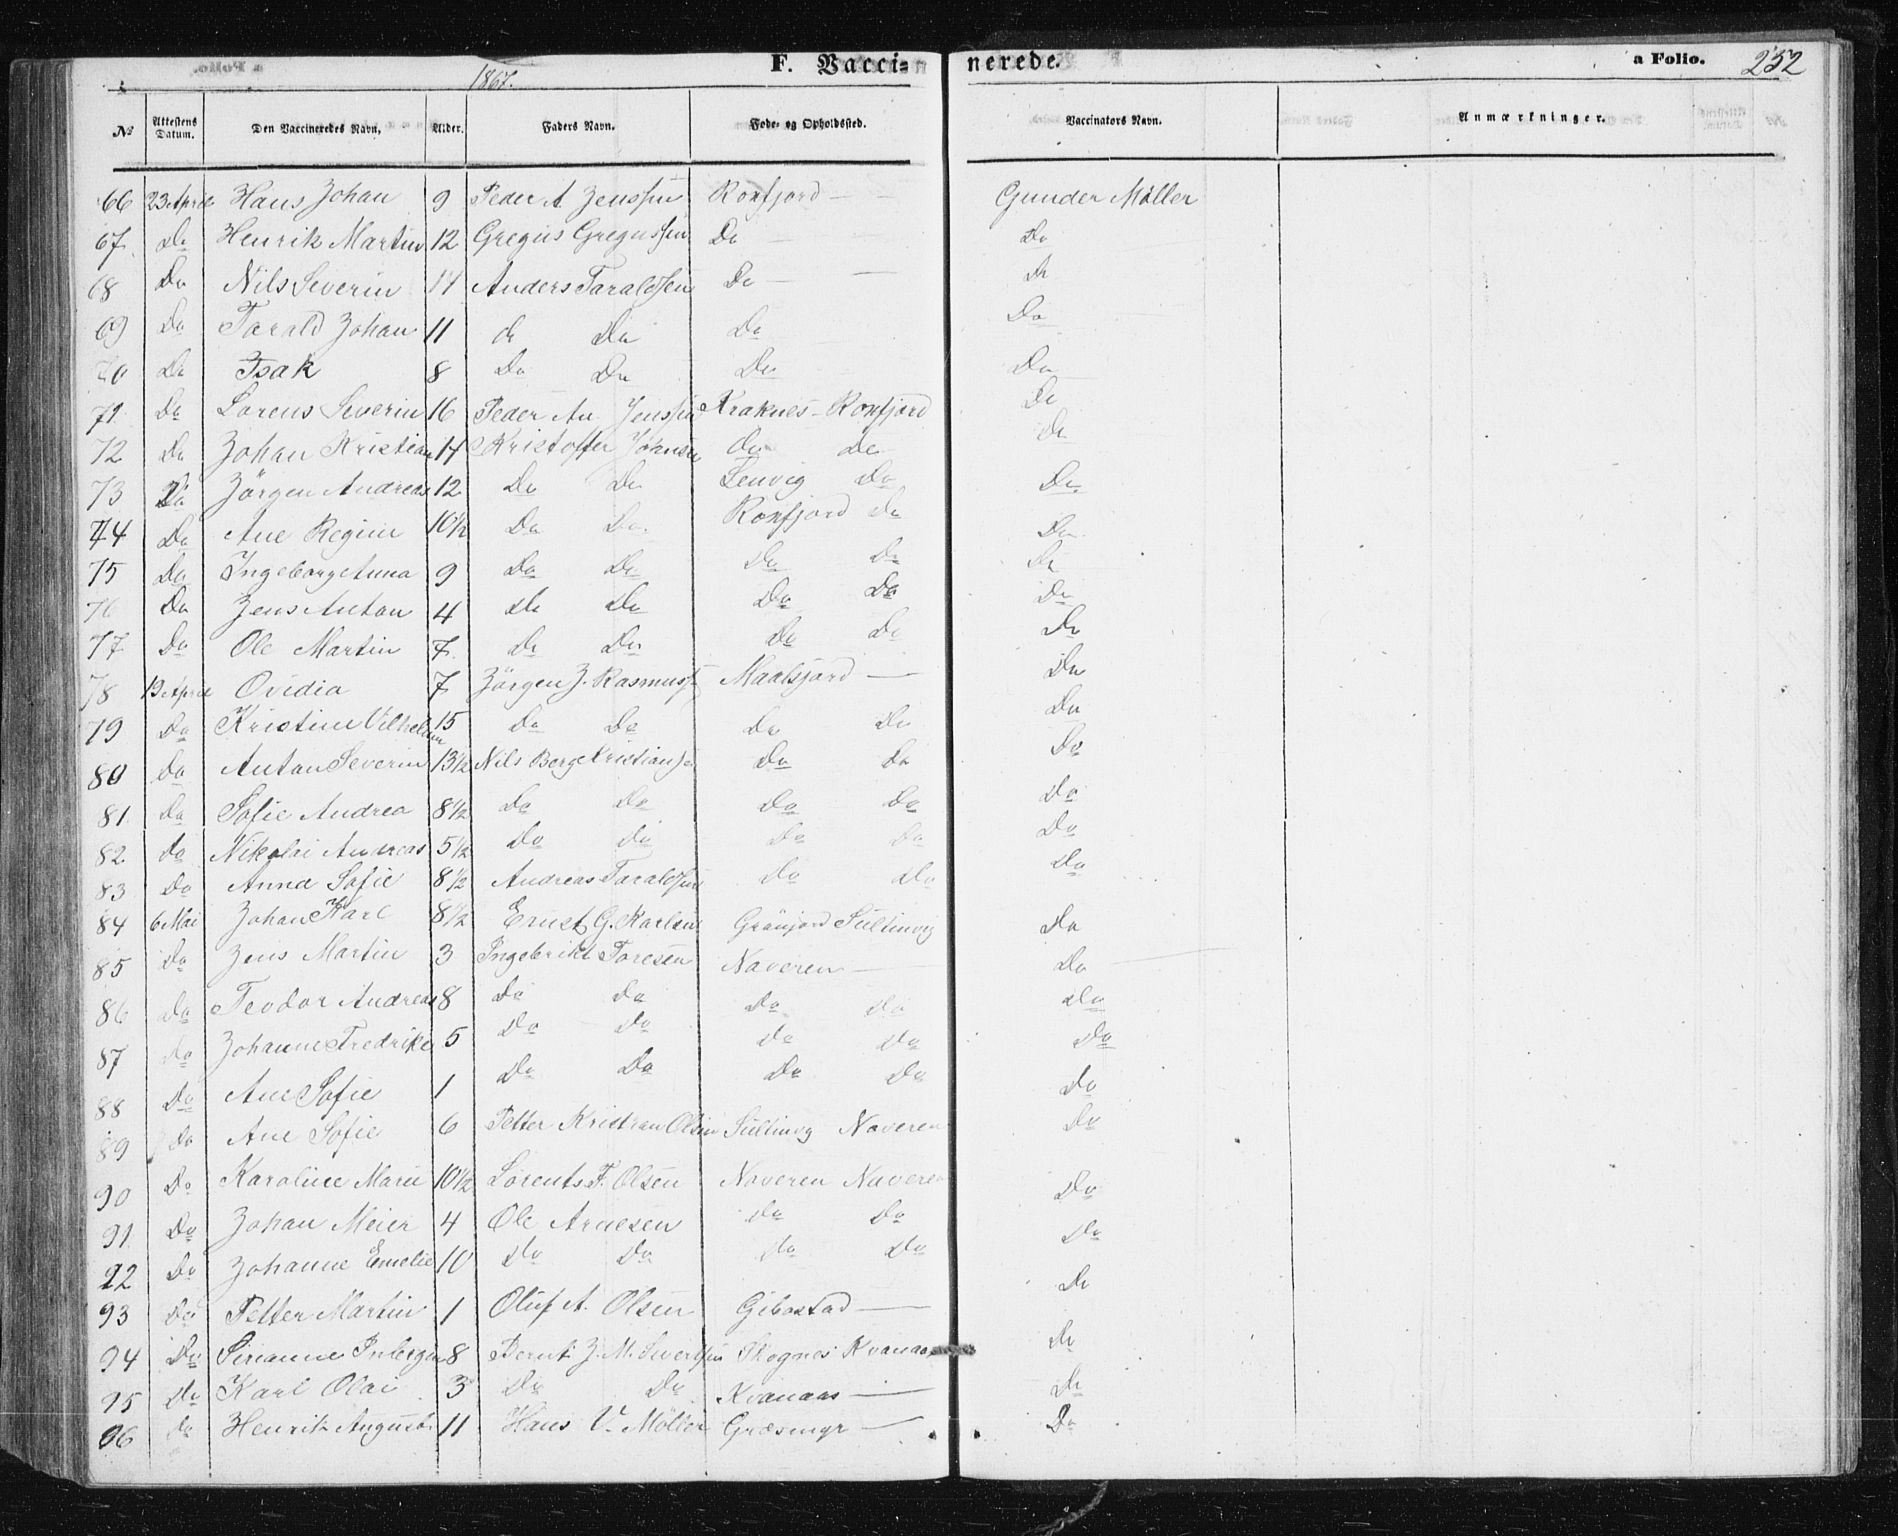 F. Vaccinerede. a Folio. 252
1867.
№ Attestens Datum. Den Vaccineredes Navn. Alder. Faders Navn. Føde- og Opholdssted. Vaccinators Navn. Anmærkninger.
66 23 April Hans Johan 9 Peder A. Jenssen Roxfjord — — Gunder Møller
67. Do Henrik Martin 12 Gregus Gregussen Do — — Do
68 Do Nils Severin 14 Anders Taraldsen Do — — Do
69 Do Tarald Johan 11 do Do Do Do
70 Do Isak 8 Do Do Do Do
71. Do Lorens Severin 16 Peder An. Jenssen Kraknes - Roxfjord Do
72 Do Johan Kristian 14 Kristoffer Johnsen Do do Do
73 Do Jörgen Andreas 12 Do Do Lenvig Do Do
74 Do Ane Regine 10½ Do Do Roxfjord do Do
75 Do Ingeborg Anna 9 Do Do Do Do Do
76 Do Jens Anton 4 Do Do Do Do Do
77 Do Ole Martin 7. Do Do Do Do Do
78 19 April Ovidia 7 Jörgen J. Rasmuss. Maalsjord — Do
79 Do Kristine Vilhelm 15 Do Do Do Do Do
80 Do Anton Severin 13½ Nils Berg Kristians. Do Do Do
81. Do Sofie Andrea 8½ Do Do Do Do Do
82. do Nikolai Andreas 5½ Do Do Do Do Do
83 Do Anna Sofie 8½ Andreas Taraldsen Do Do Do
84 6 Mai Johan Karl 8½ Ernst G. Karlsen Grönjord Sultinvig Do
85 Do Jens Martin 3 Ingebrikt Toresen Naveren — Do
86 Do Teodor Andreas 8 Do Do Do Do Do
87 Do Johanne Fredrike 5 Do Do Do Do Do
88 Do Ane Sofie 1 Do Do Do Do Do
89 Do Ane Sofie 6 Petter Kristian Olsen Sultinvig Naveren Do
90 Do Karoline Marie 10½ Lorents F. Olsen Naveren Naveren Do
91 Do Johan Meier 4 Ole Arnesen Do Do Do
92 Do Johanne Emelie 10 Do Do Do Do Do
93 Do Petter Martin 1 Oluf A. Olsen Gibostad — Do
94 Do 8 Bernt J. M. Sivertsen Skognes Kvanaas Do
95 Do Karl Olai 3 Do Do Kvanaas — Do
96 Do Henrik August 11 Hans V. Möller Græsmyr — Do